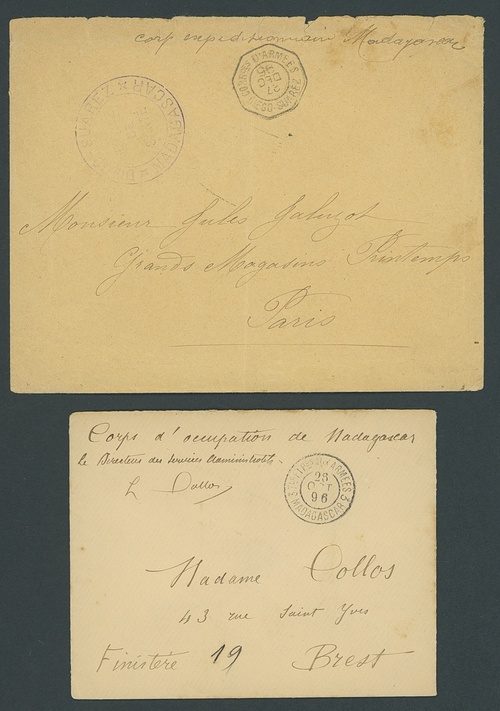 corp expeditionnair Madagascar
CORRESP. D'ARMEES
27
DEC
95
DIEGO-SUAREZ
MADAGASCAR
Monsieur Jules Jaluzot
Grands Magasins Printemps
Paris
Corps d'occupation de Madagascar
le Directeur des Services Administratifs
ARMEES
25
OCT
96
MADAGASCAR
Madame Collos
43 rue Saint Yves
Finistère 19 Brest